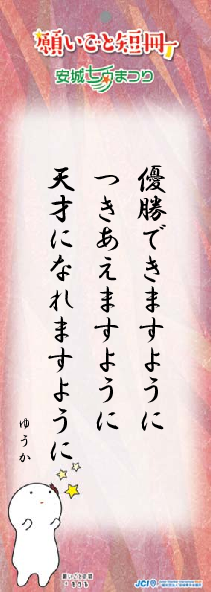 願いごと短冊
安城七夕まつり
優勝できますように
つきあえますように
天才になれますように
ゆうか
願いごと短冊
JCI